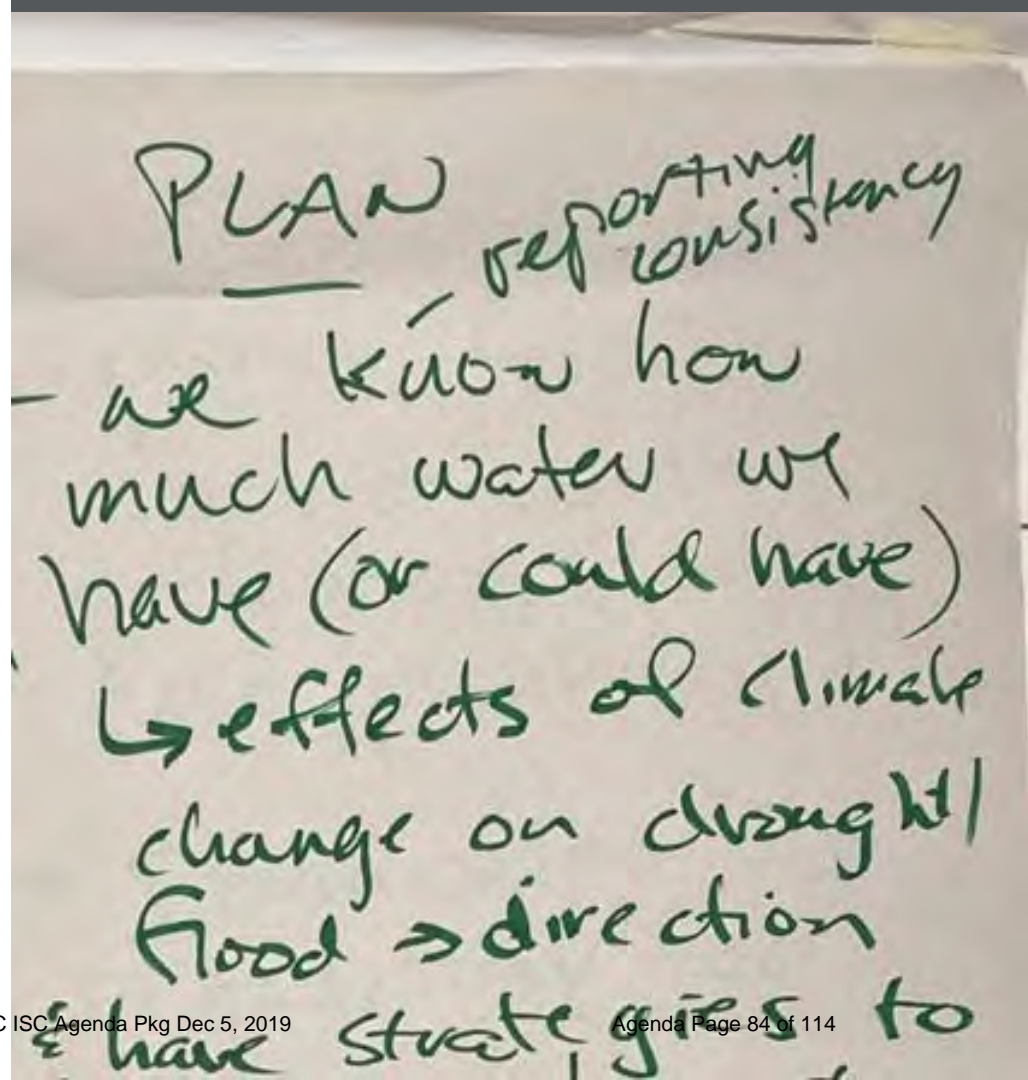 PLAN
reporting
consistency
- we know how
much water we
have (or could have)
↳ effects of climate
change on drought/
flood → direction
& have strategies to
C ISC Agenda Pkg Dec 5, 2019
Agenda Page 84 of 114